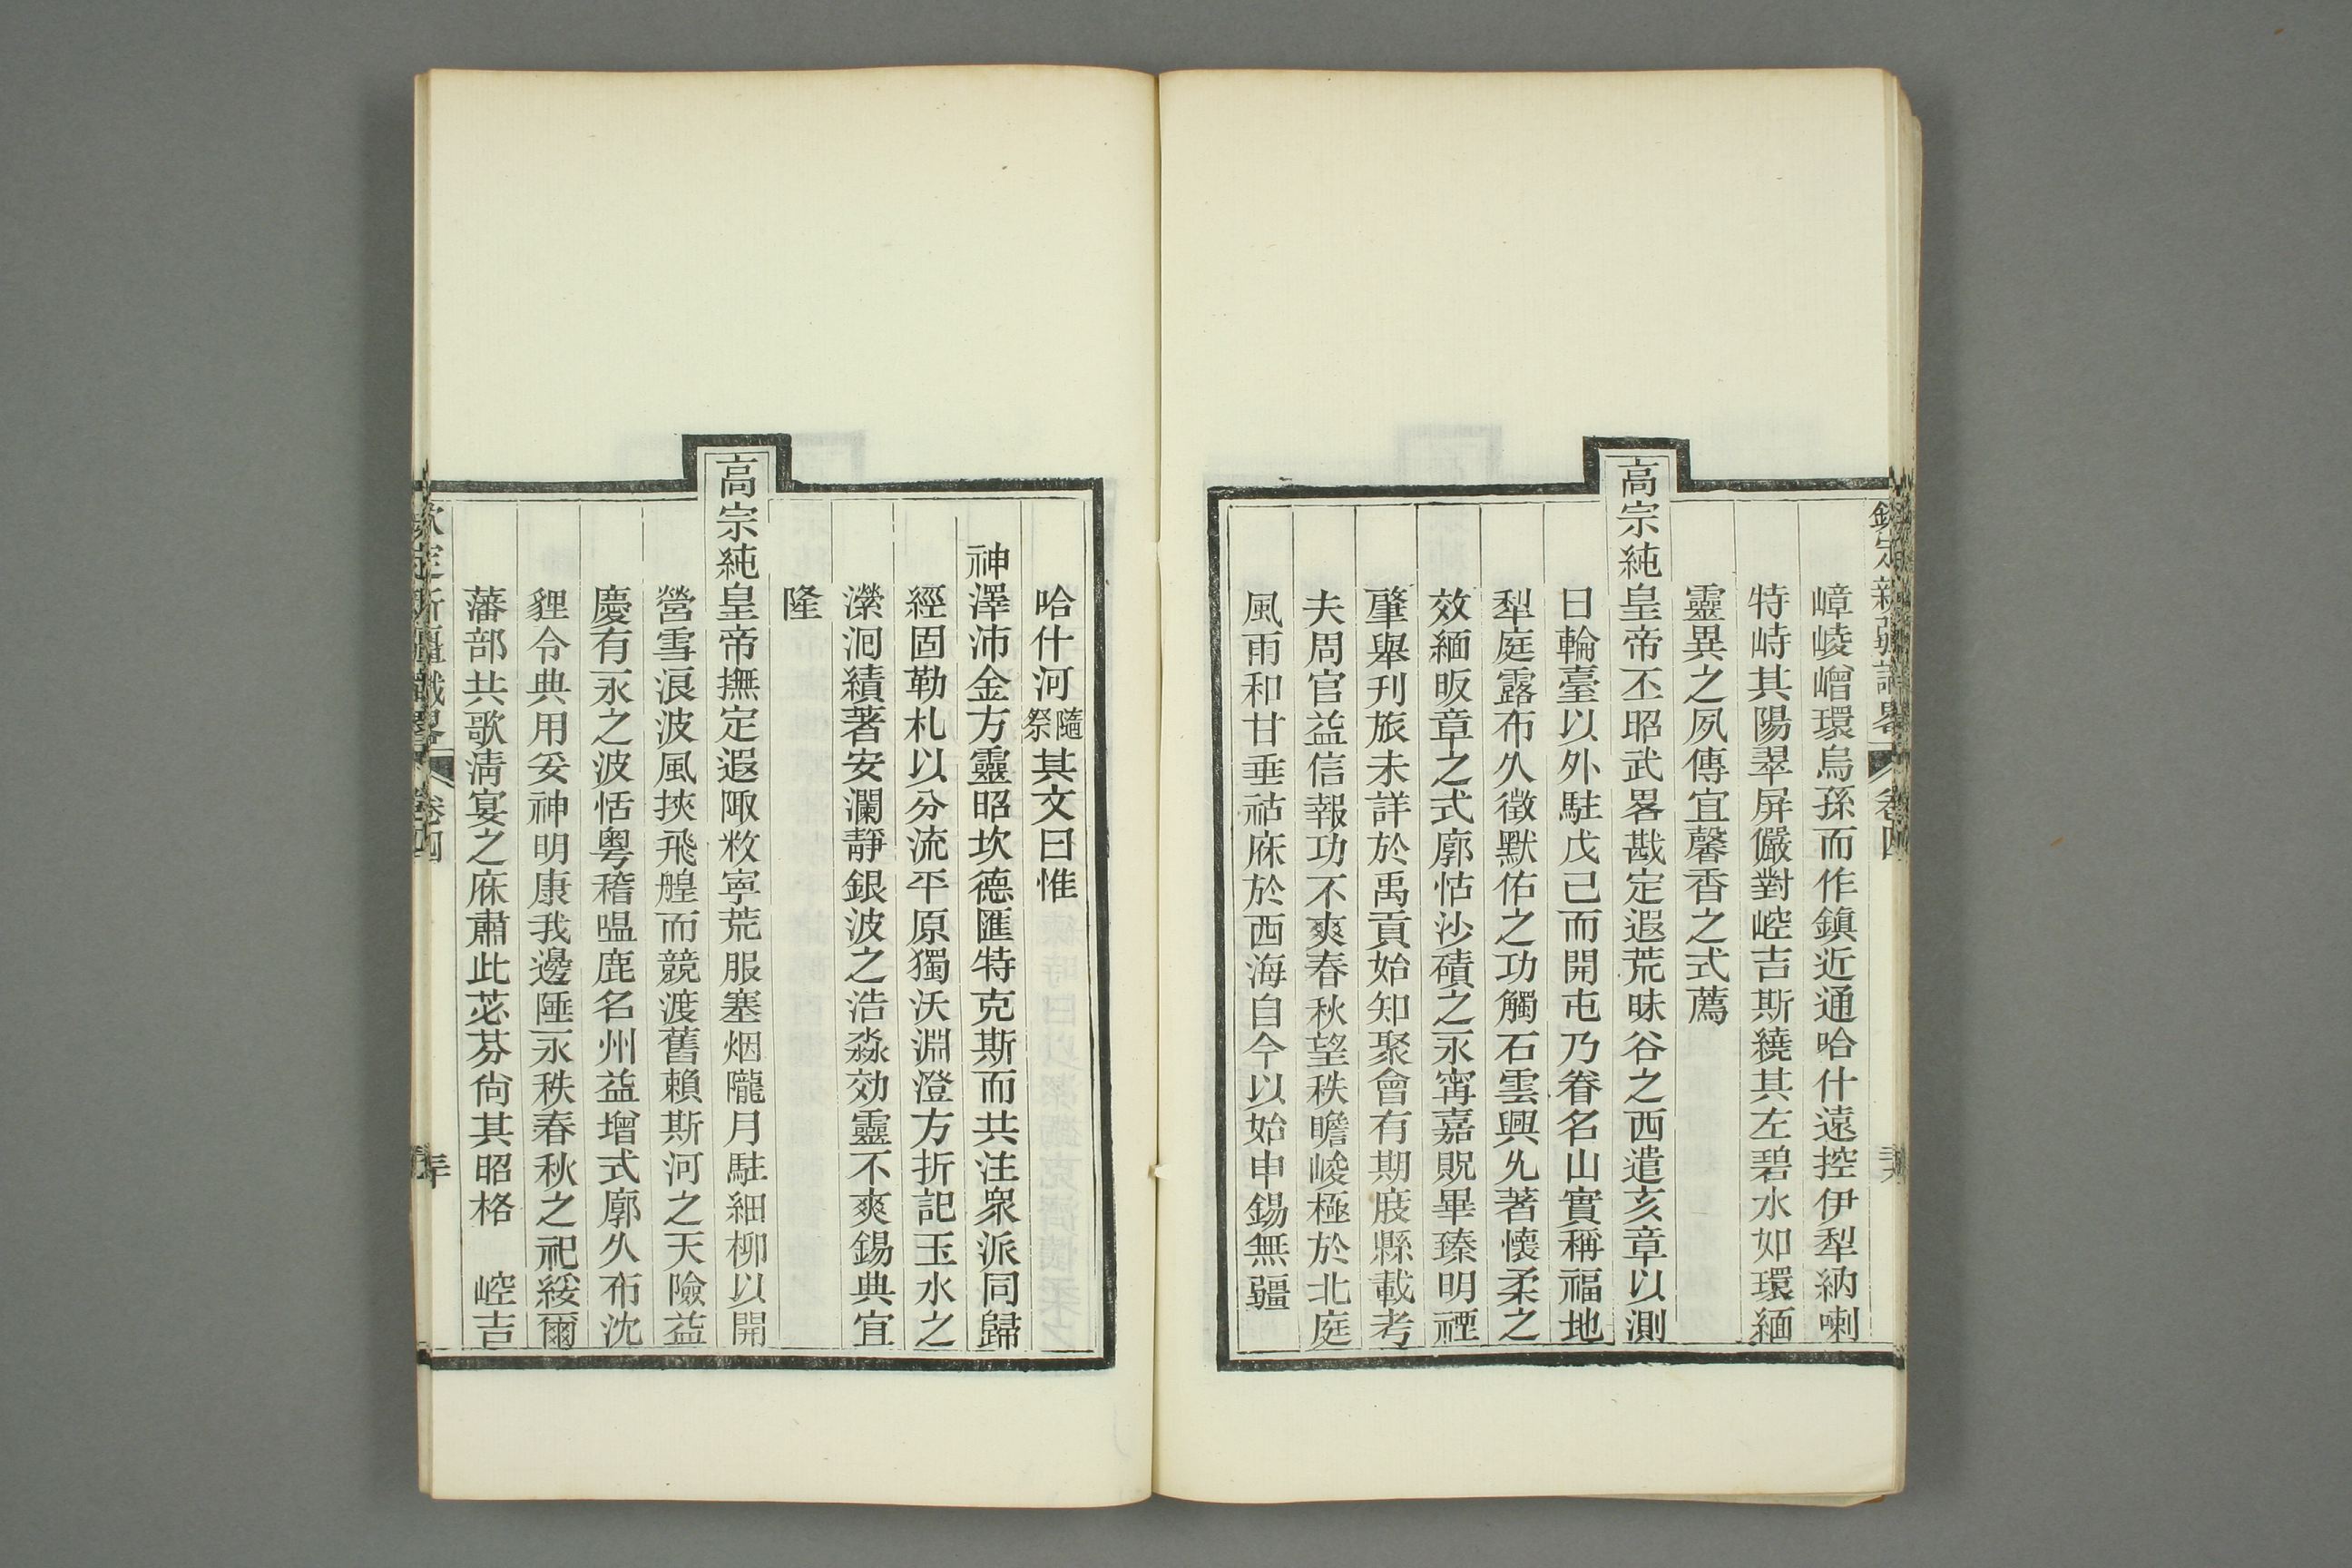 嶂崚嶒環烏孫而作鎮近通哈什遠控伊犁納喇
特峙其陽翠屏儼對崆吉斯繞其左碧水如環緬
靈異之夙傳宜馨香之式薦
高宗純皇帝丕昭武畧戡定遐荒昧谷之西遣亥章以測
日輪臺以外駐戊己而開屯乃眷名山實稱福地
犁庭露布久徵默佑之功觸石雲興允著懷柔之
效緬昄章之式廓怙沙磧之永甯嘉貺畢臻明禋
肇舉刋旅未詳於禹貢始知聚會有期庪縣載考
夫周官益信報功不爽春秋望秩瞻峻極於北庭
風雨和甘垂祜庥於西海自今以始申錫無疆
哈什河隨祭其文曰惟
神澤沛金方靈昭坎德匯特克斯而共注衆派同歸
經固勒札以分流平原獨沃淵澄方折記玉水之
瀠洄績著安瀾靜銀波之浩淼効靈不爽錫典宜
隆
高宗純皇帝撫定遐陬敉寧荒服塞烟隴月駐細柳以開
營雪浪波風挾飛艎而競渡舊賴斯河之天險益
慶有永之波恬粵稽嗢鹿名州益增式廓久布沈
貍令典用妥神明康我邊陲永秩春秋之祀綏爾
藩部共歌淸宴之庥肅此苾芬尙其昭格 崆吉
卷四